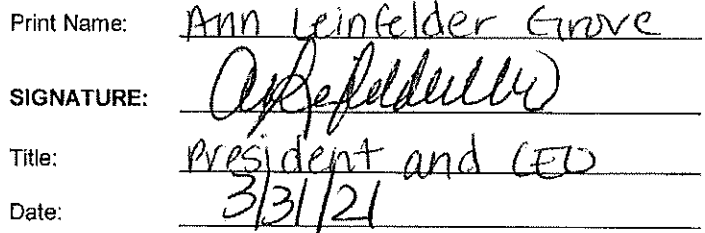 Print Name: Ann Leinfelder Grove
SIGNATURE:
Title: President and CEO
Date: 3/31/21